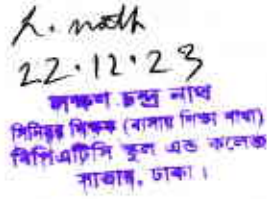 L. nath
22.12.23
লক্ষণ চন্দ্র নাথ
সিনিয়র শিক্ষক (ব্যবসায় শিক্ষা শাখা)
বিপিএটিসি স্কুল এন্ড কলেজ
সাভার, ঢাকা।